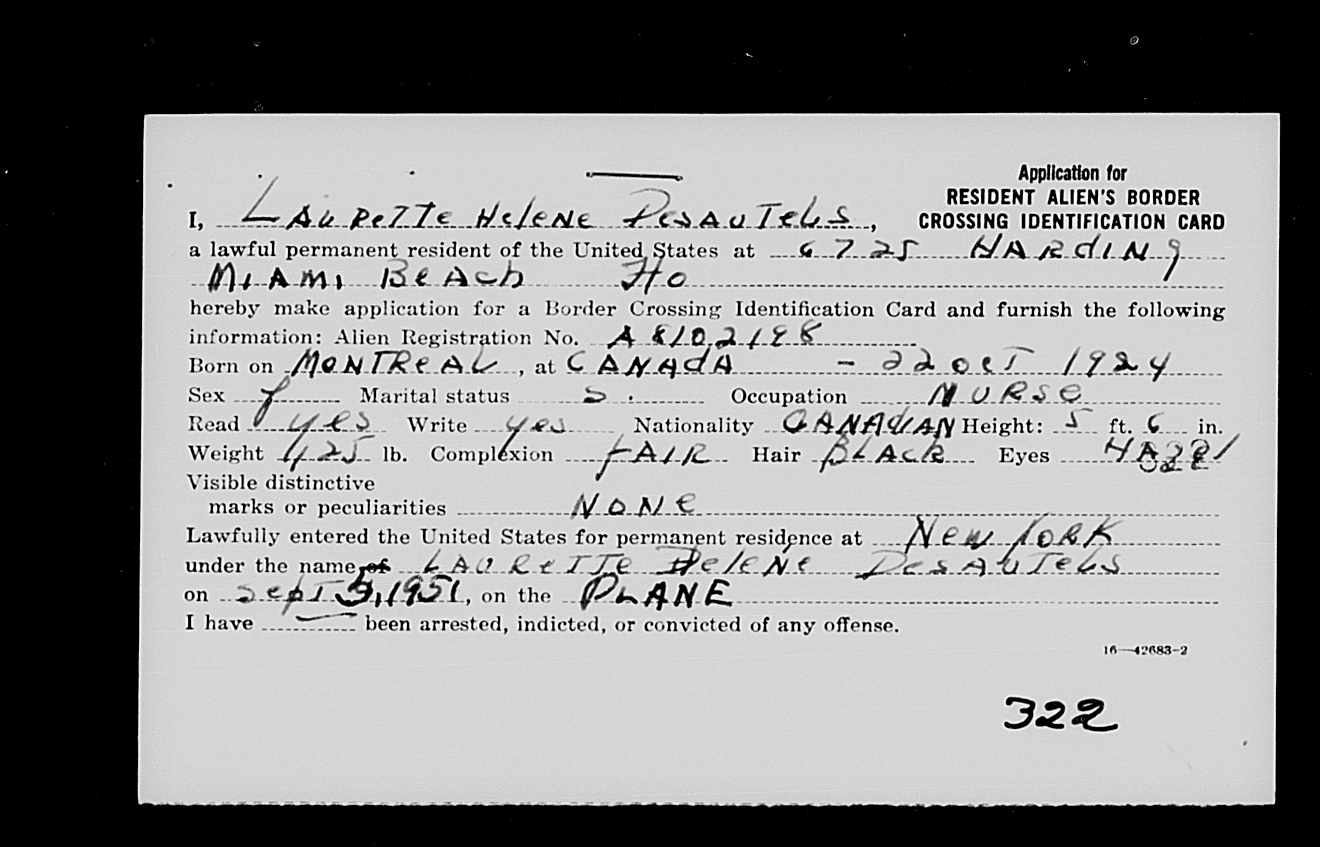 Application for
RESIDENT ALIEN'S BORDER
CROSSING IDENTIFICATION CARD
I, LAUReTTe HeleNe DesAuTeLS,
a lawful permanent resident of the United States at 6725 HARdINg
MIAMI BeAch Flo
hereby make application for a Border Crossing Identification Card and furnish the following
information: Alien Registration No. A 8102198
Born on MONTReAL, at CANAdA - 22 OcT 1924
Sex f Marital status S. Occupation NURSe
Read yes Write yes Nationality CANAdIAN Height: 5 ft. 6 in.
Weight 125 lb. Complexion fAIR Hair BLAcK Eyes
Visible distinctive
marks or peculiarities NONe
Lawfully entered the United States for permanent residence at New YORK
under the name of LAUReTTe HeleNe DesAuTeLS
on SepT 5, 1951, on the PLANE
I have — been arrested, indicted, or convicted of any offense.
16—42683-2
322